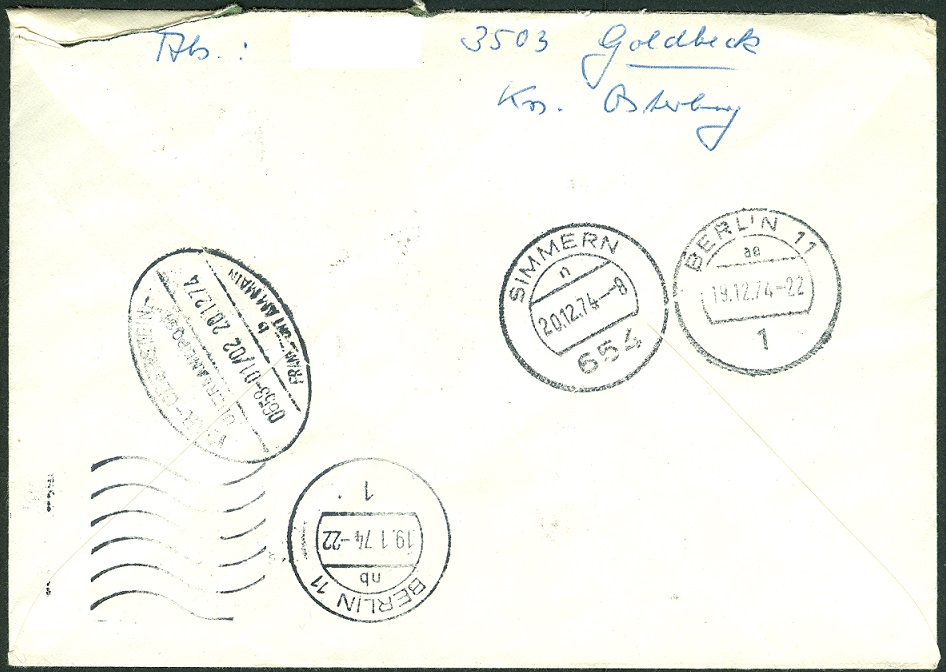 Abs.: 3503 Goldbeck
Krs. Osterburg
SIMMERN
n
20.12.74-8
654
BERLIN 11
ae
19.12.74-22
1
FRANKFURT AM MAIN
b
0558-01/02 20.12.74
1
19.1 74-22
nb
BERLIN 11